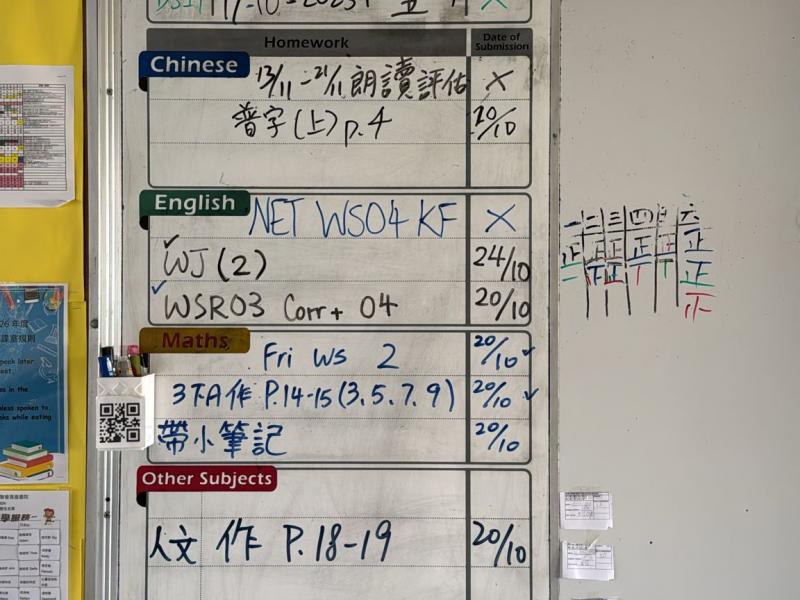 Homework
Date of Submission
Chinese
13/11-21/11 朗讀評估 ×
普字(上) p.4 20/10
English
NET WS04 KF ×
WJ (2) 24/10
WSR03 Corr + 04 20/10
Maths
Fri WS 2 20/10
3下A作 P.14-15 (3.5.7.9) 20/10
帶小筆記 20/10
Other Subjects
人文 作 P.18-19 20/10
一 二 三 四 五 六